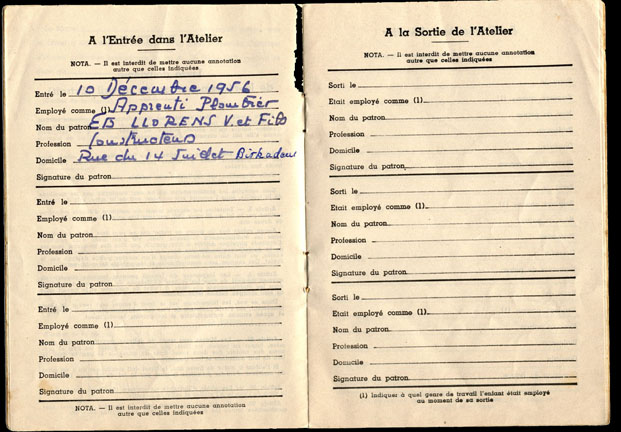 A l'Entrée dans l'Atelier
NOTA. — Il est interdit de mettre aucune annotation
autre que celles indiquées
Entré le 10 Décembre 1956
Employé comme (1) Apprenti Plombier
Nom du patron Ets LLORENS V. et Fils
Profession Constructeurs
Domicile Rue du 14 Juillet Birkadem
Signature du patron
Entré le
Employé comme (1)
Nom du patron
Profession
Domicile
Signature du patron
Entré le
Employé comme (1)
Nom du patron
Profession
Domicile
Signature du patron
NOTA. — Il est interdit de mettre aucune annotation
autre que celles indiquées
A la Sortie de l'Atelier
NOTA. — Il est interdit de mettre aucune annotation
autre que celles indiquées
Sorti le
Etait employé comme (1)
Nom du patron
Profession
Domicile
Signature du patron
Sorti le
Etait employé comme (1)
Nom du patron
Profession
Domicile
Signature du patron
Sorti le
Etait employé comme (1)
Nom du patron
Profession
Domicile
Signature du patron
(1) Indiquer à quel genre de travail l'enfant était employé
au moment de sa sortie